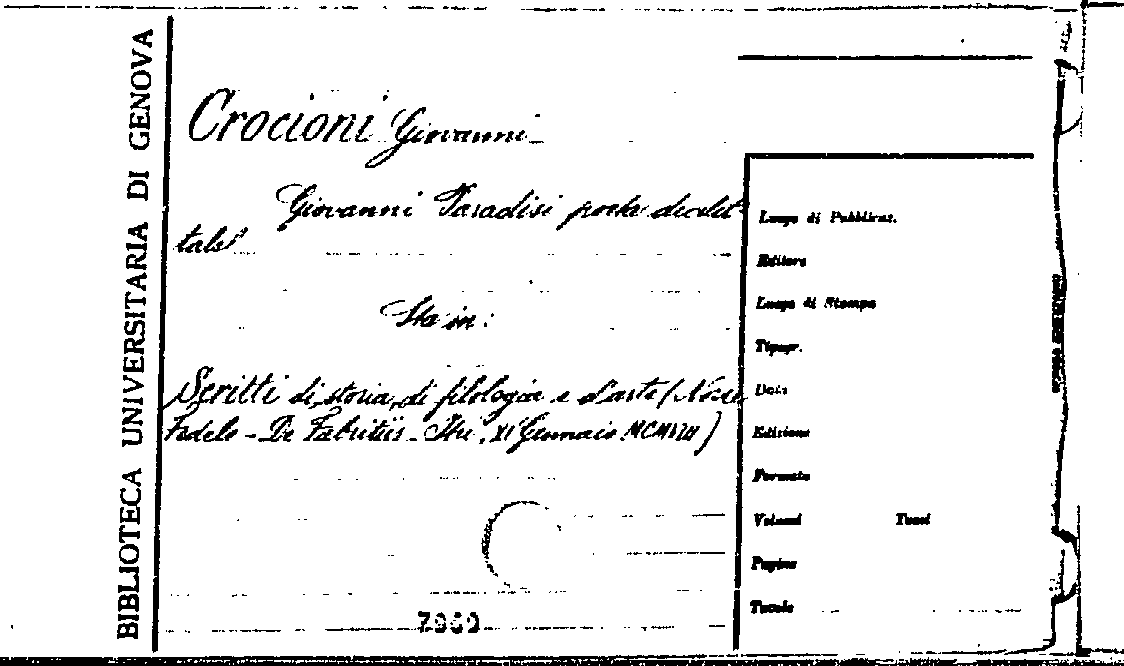 BIBLIOTECA UNIVERSITARIA DI GENOVA
Crocioni Giovanni
Giovanni Paradisi poeta
tale
Sta in:
Scritti di storia, di filologia e d'arte (Nozze
Fedele - De Fabritiis. XI Gennaio
Luogo di Pubblicaz.
Editore
Luogo di Stampa
Tipogr.
Data
Edizione
Formato
Volumi Tomi
Pagine
Tavole